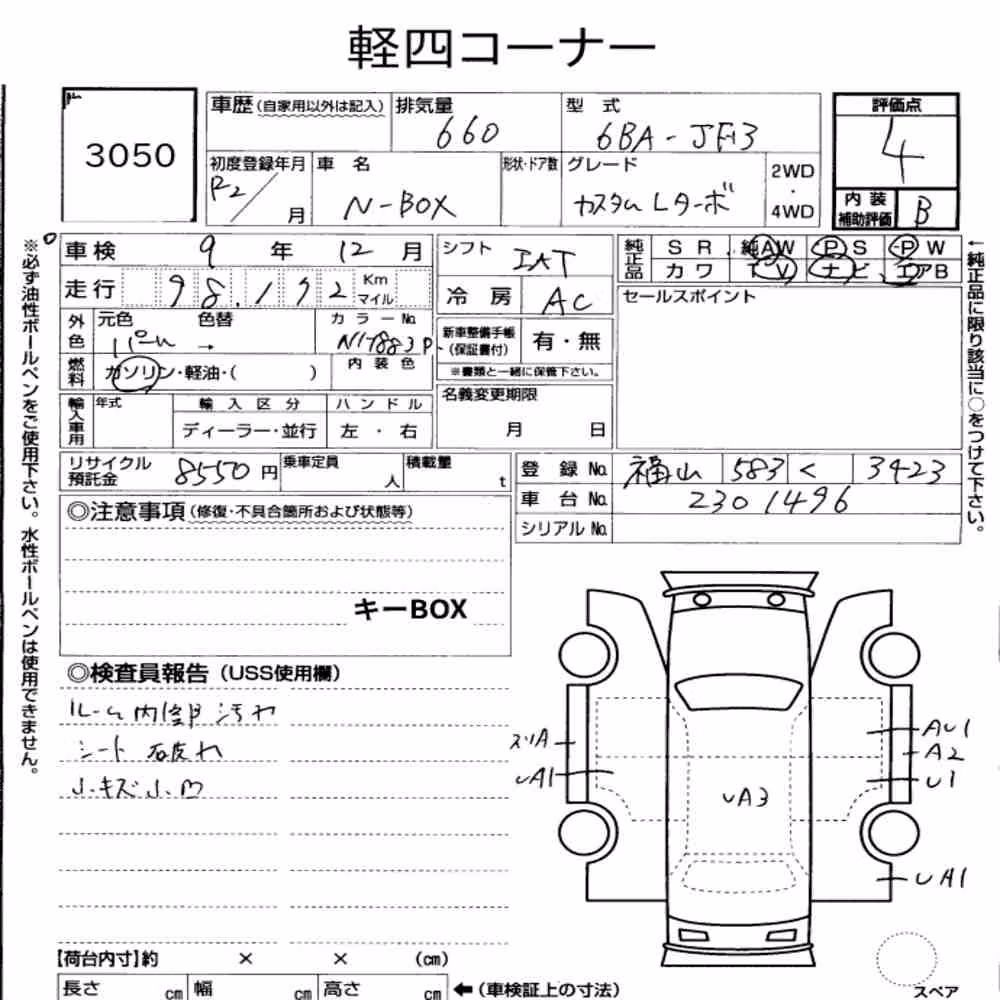 軽四コーナー
3050
車歴(自家用以外は記入) 排気量 660 型式 6BA-JF3
初度登録年月 R2 月 車名 N-BOX 形状・ドア数 グレード カスタム Lターボ 2WD・4WD
評価点 4
内装補助評価 B
※必ず油性ボールペンをご使用下さい。水性ボールペンは使用できません。
車検 9年 12月
走行 98,192 Km マイル
外色 元色 パール 色替 → カラーNo. NH883P
燃料 ガソリン・軽油・( ) 内装色
輸入車用 年式 輸入区分 ディーラー・並行 ハンドル 左・右
シフト IAT
冷房 AC
新車整備手帳(保証書付) 有・無
※書類と一緒に保管下さい。
名義変更期限 月 日
純正品 SR 純AW PS PW
カワ TV ナビ エアB
セールスポイント
←純正品に限り該当に○をつけて下さい。
リサイクル預託金 8550円 乗車定員 人 積載量 t
登録No. 福山 583 く 3423
車台No. 2301496
シリアルNo.
◎注意事項(修復・不具合箇所および状態等)
キーBOX
◎検査員報告(USS使用欄)
ルーム内装汚れ
シート破れ
小キズ小凹
スリA
UA1
UA3
AU1
A2
U1
UA1
【荷台内寸】約 × × (cm)
長さ cm 幅 cm 高さ cm ←(車検証上の寸法)
スペア